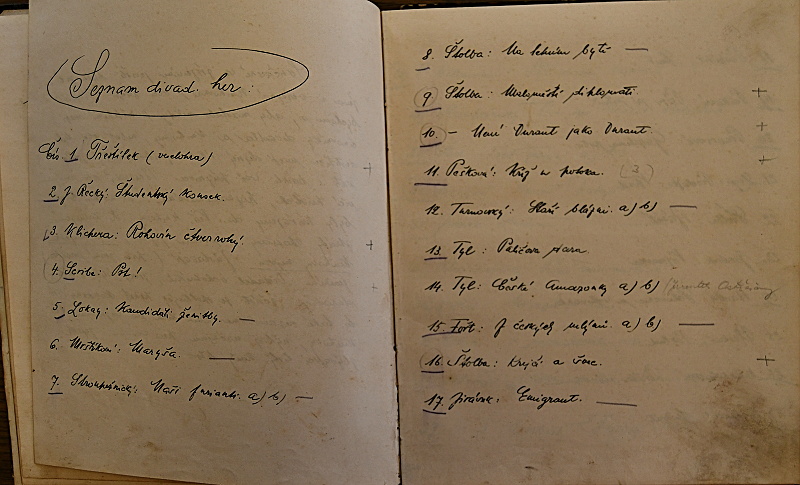 Seznam divad. her:
Čís. 1. Třeštílek (veselohra)
2. J. Řecký: Studentský kousek.
3. Klicpera: Rohovín čtverrohý.
4. Scribe: Pst!
5. Lokay: Kandidát ženitby. —
6. Mrštíkové: Maryša. —
7. Stroupežnický: Naši furianti. a) b) —
8. Štolba: Na letním bytě —
9 Štolba: Maloměstští diplomati. +
10. — Není Durant jako Durant. +
11. Pešková: Kříž u potoka. (3) +
12. Turnovský: Staří blázni. a) b) —
13. Tyl: Paličova dcera.
14. Tyl: České Amazonky a) b)
15. Fořt: Z českých mlýnů. a) b) —
16. Štolba: Krejčí a švec. +
17. Jirásek: Emigrant. —